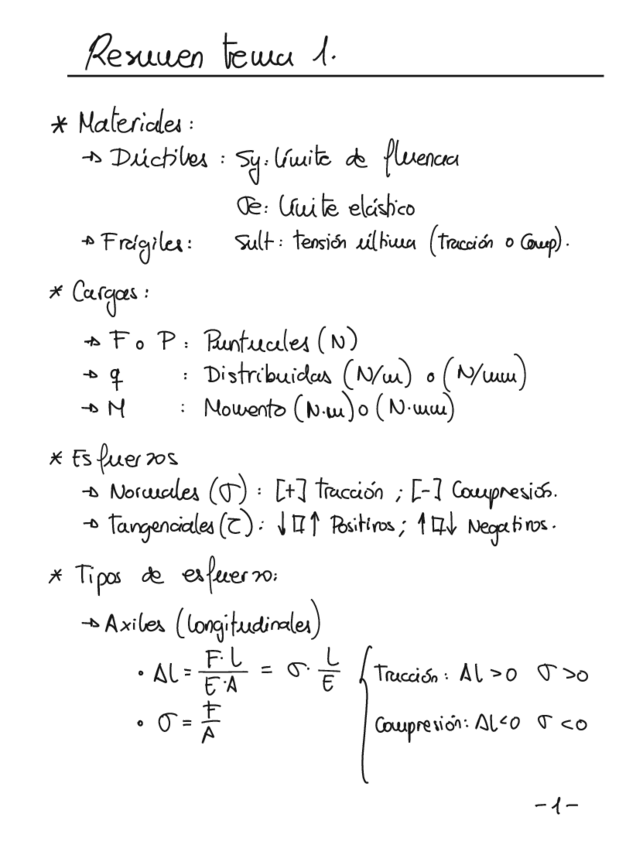 Resumen tema 1.
* Materiales:
→ Dúctiles: Sy: límite de fluencia
σe: límite elástico
→ Frágiles: Sult: tensión última (tracción o comp).
* Cargas:
→ F o P: Puntuales (N)
→ q : Distribuidas (N/m) o (N/mm)
→ M : Momento (N·m) o (N·mm)
* Esfuerzos
→ Normales (σ): [+] tracción; [-] Compresión.
→ tangenciales (τ): ↓□↑ Positivos; ↑□↓ Negativos.
* Tipos de esfuerzo:
→ Axiles (longitudinales)
• ΔL = F·L / E·A = σ · L/E { Tracción: ΔL>0 σ>0
• σ = F/A Compresión: ΔL<0 σ<0
-1-